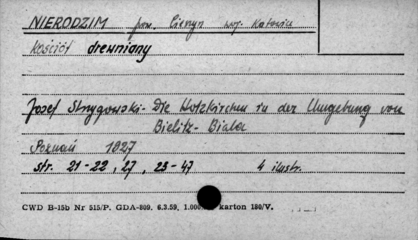 NIERODZIM pow. Cieszyn woj. Katowice
Kościół drewniany
Josef Strzygowski - Die Holzkirchen in der Umgebung von
Bielitz - Biala
Poznań 1927
str. 21-22, 27, 25-47 4 ilustr.
CWD B-15b Nr 515/P. GDA-809. 6.3.59. 1.000 karton 180/V.